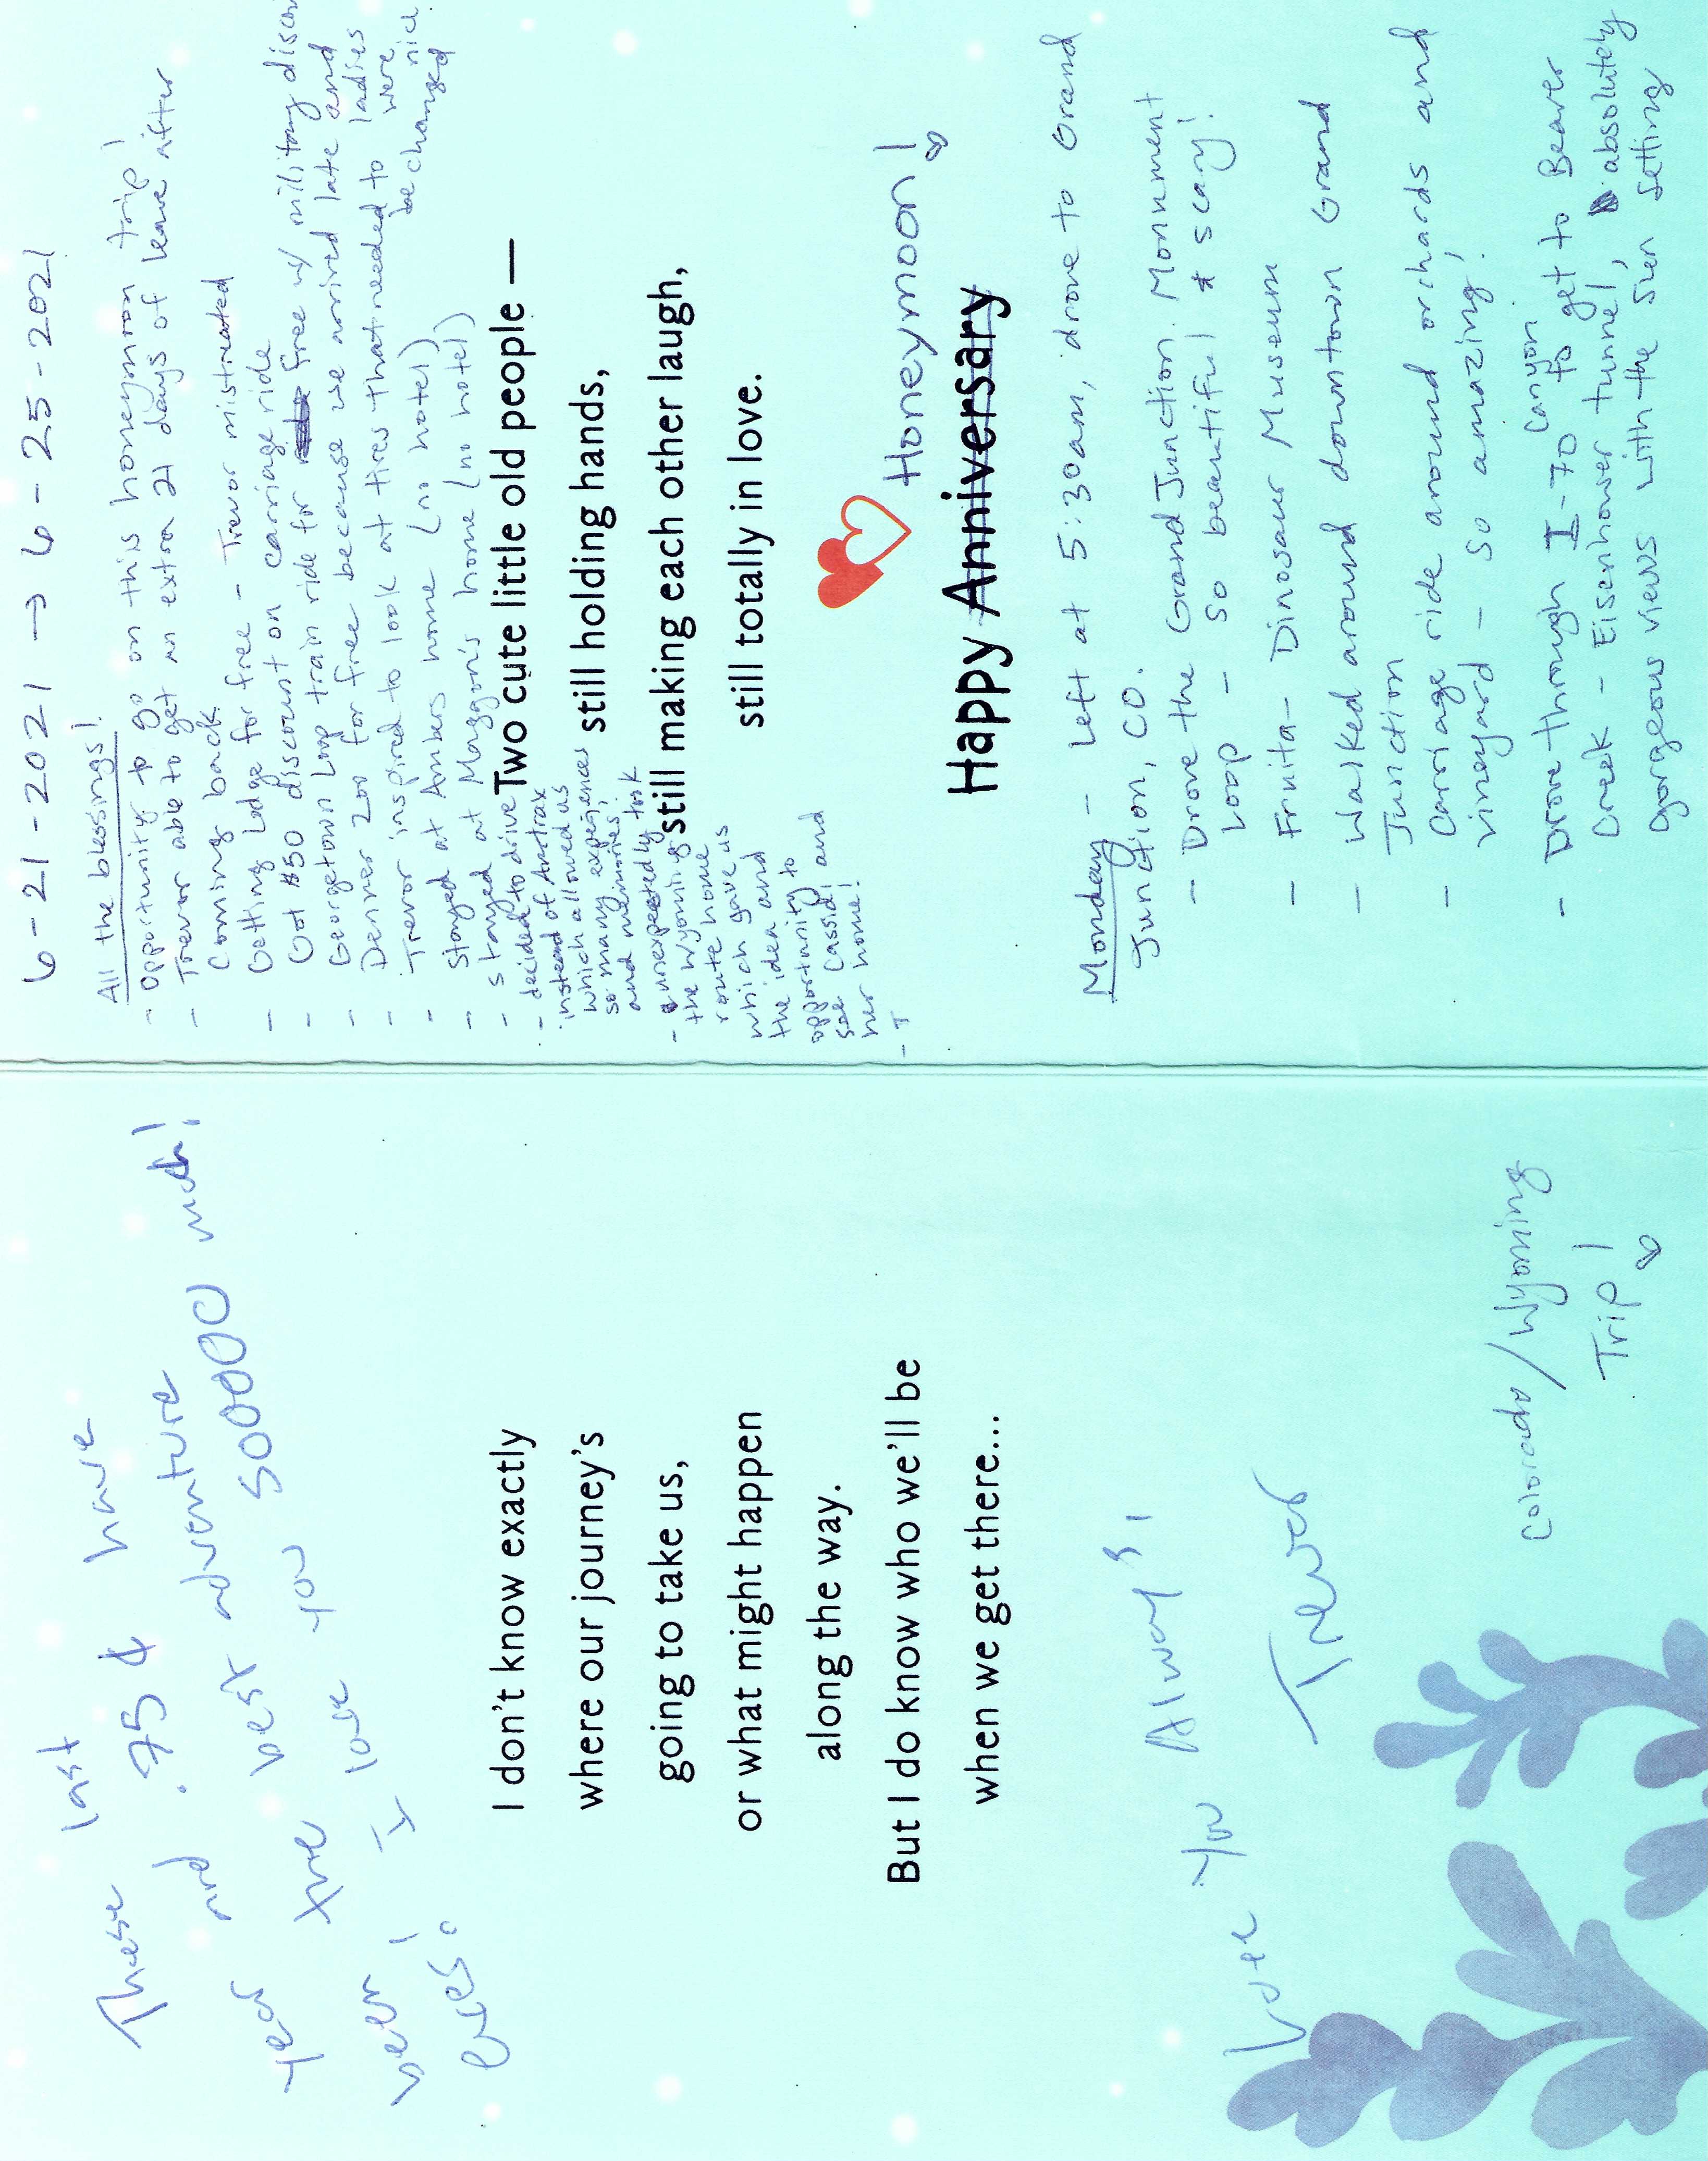 These last
year and .75 have
the best adventure
been! I love you soooo much!
eyes!
I don't know exactly
where our journey's
going to take us,
or what might happen
along the way.
But I do know who we'll be
when we get there...
Love You Always,
Trevor
Colorado/Wyoming
Trip!
6-21-2021 → 6-25-2021
All the blessings!
- Opportunity to go on this honeymoon trip!
- Trevor able to get an extra 21 days of leave after
coming back
- Getting Lodge for free - Trevor mistreated
- Got $50 discount on carriage ride
- Georgetown Loop train ride for free w/ military
- Denver Zoo for free because we arrived late and
ladies were nice
- Trevor inspired to look at tires that needed to
be changed
- Stayed at Ambers home (no hotel)
- stayed at Maggon's home (no hotel)
- decided to drive
instead of
which allowed us
so many experiences
and memories!
- unexpectedly took
the Wyoming
route home
which gave us
the idea and
opportunity to
see Cassidi and
her home!
- I
Two cute little old people —
still holding hands,
still making each other laugh,
still totally in love.
Honeymoon!
Happy Anniversary
Monday - Left at 5:30am, drove to Grand
Junction, CO.
- Drove the Grand Junction Monument
Loop - So beautiful & scary!
- Fruita - Dinosaur Museum
- Walked around downtown Grand
Junction
- Carriage ride around orchards and
vineyard - so amazing!
- Drove through I-70 Canyon to get to Beaver
Creek - Eisenhower tunnel, absolutely
gorgeous views with the sun setting